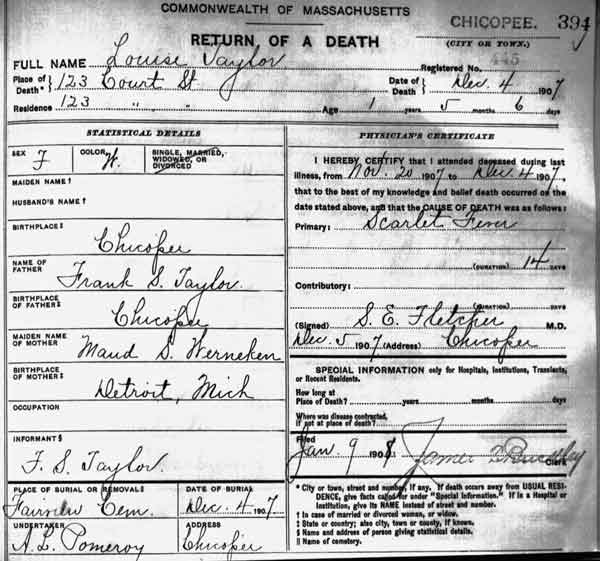 COMMONWEALTH OF MASSACHUSETTS
CHICOPEE. 394
RETURN OF A DEATH
(CITY OR TOWN.)
FULL NAME Louise Taylor
Registered No. 445
Place of Death* 123 Court St
Date of Death Dec. 4 1907
Residence 123 " " Age 1 years 5 months 6 days
STATISTICAL DETAILS
SEX F COLOR W. SINGLE, MARRIED, WIDOWED, OR DIVORCED
MAIDEN NAME †
HUSBAND'S NAME †
BIRTHPLACE ‡
Chicopee
NAME OF FATHER
Frank S. Taylor
BIRTHPLACE OF FATHER ‡
Chicopee
MAIDEN NAME OF MOTHER
Maud S. Werneken
BIRTHPLACE OF MOTHER ‡
Detroit, Mich
OCCUPATION
INFORMANT §
F. S. Taylor.
PLACE OF BURIAL OR REMOVAL ||
Fairview Cem.
DATE OF BURIAL
Dec. 4 1907
UNDERTAKER
A. L. Pomeroy
ADDRESS
Chicopee
PHYSICIAN'S CERTIFICATE
I HEREBY CERTIFY that I attended deceased during last
illness, from Nov. 20 1907 to Dec. 4 1907,
that to the best of my knowledge and belief death occurred on the
date stated above, and that the CAUSE OF DEATH was as follows:
Primary: Scarlet Fever
(DURATION) 14 DAYS
Contributory:
(DURATION) DAYS
(Signed) S. E. Fletcher M.D.
Dec. 5 1907 (Address) Chicopee
SPECIAL INFORMATION only for Hospitals, Institutions, Transients,
or Recent Residents.
How long at
Place of Death? years months days
Where was disease contracted,
if not at place of death?
Filed
Jan. 9 1908 James Buckley
Clerk
* City or town, street and number, if any. If death occurs away from USUAL RESI-
DENCE, give facts called for under "Special Information." If in a Hospital or
Institution, give its NAME instead of street and number.
† In case of married or divorced woman, or widow.
‡ State or country; also city, town or county, if known.
§ Name and address of person giving statistical details.
|| Name of cemetery.